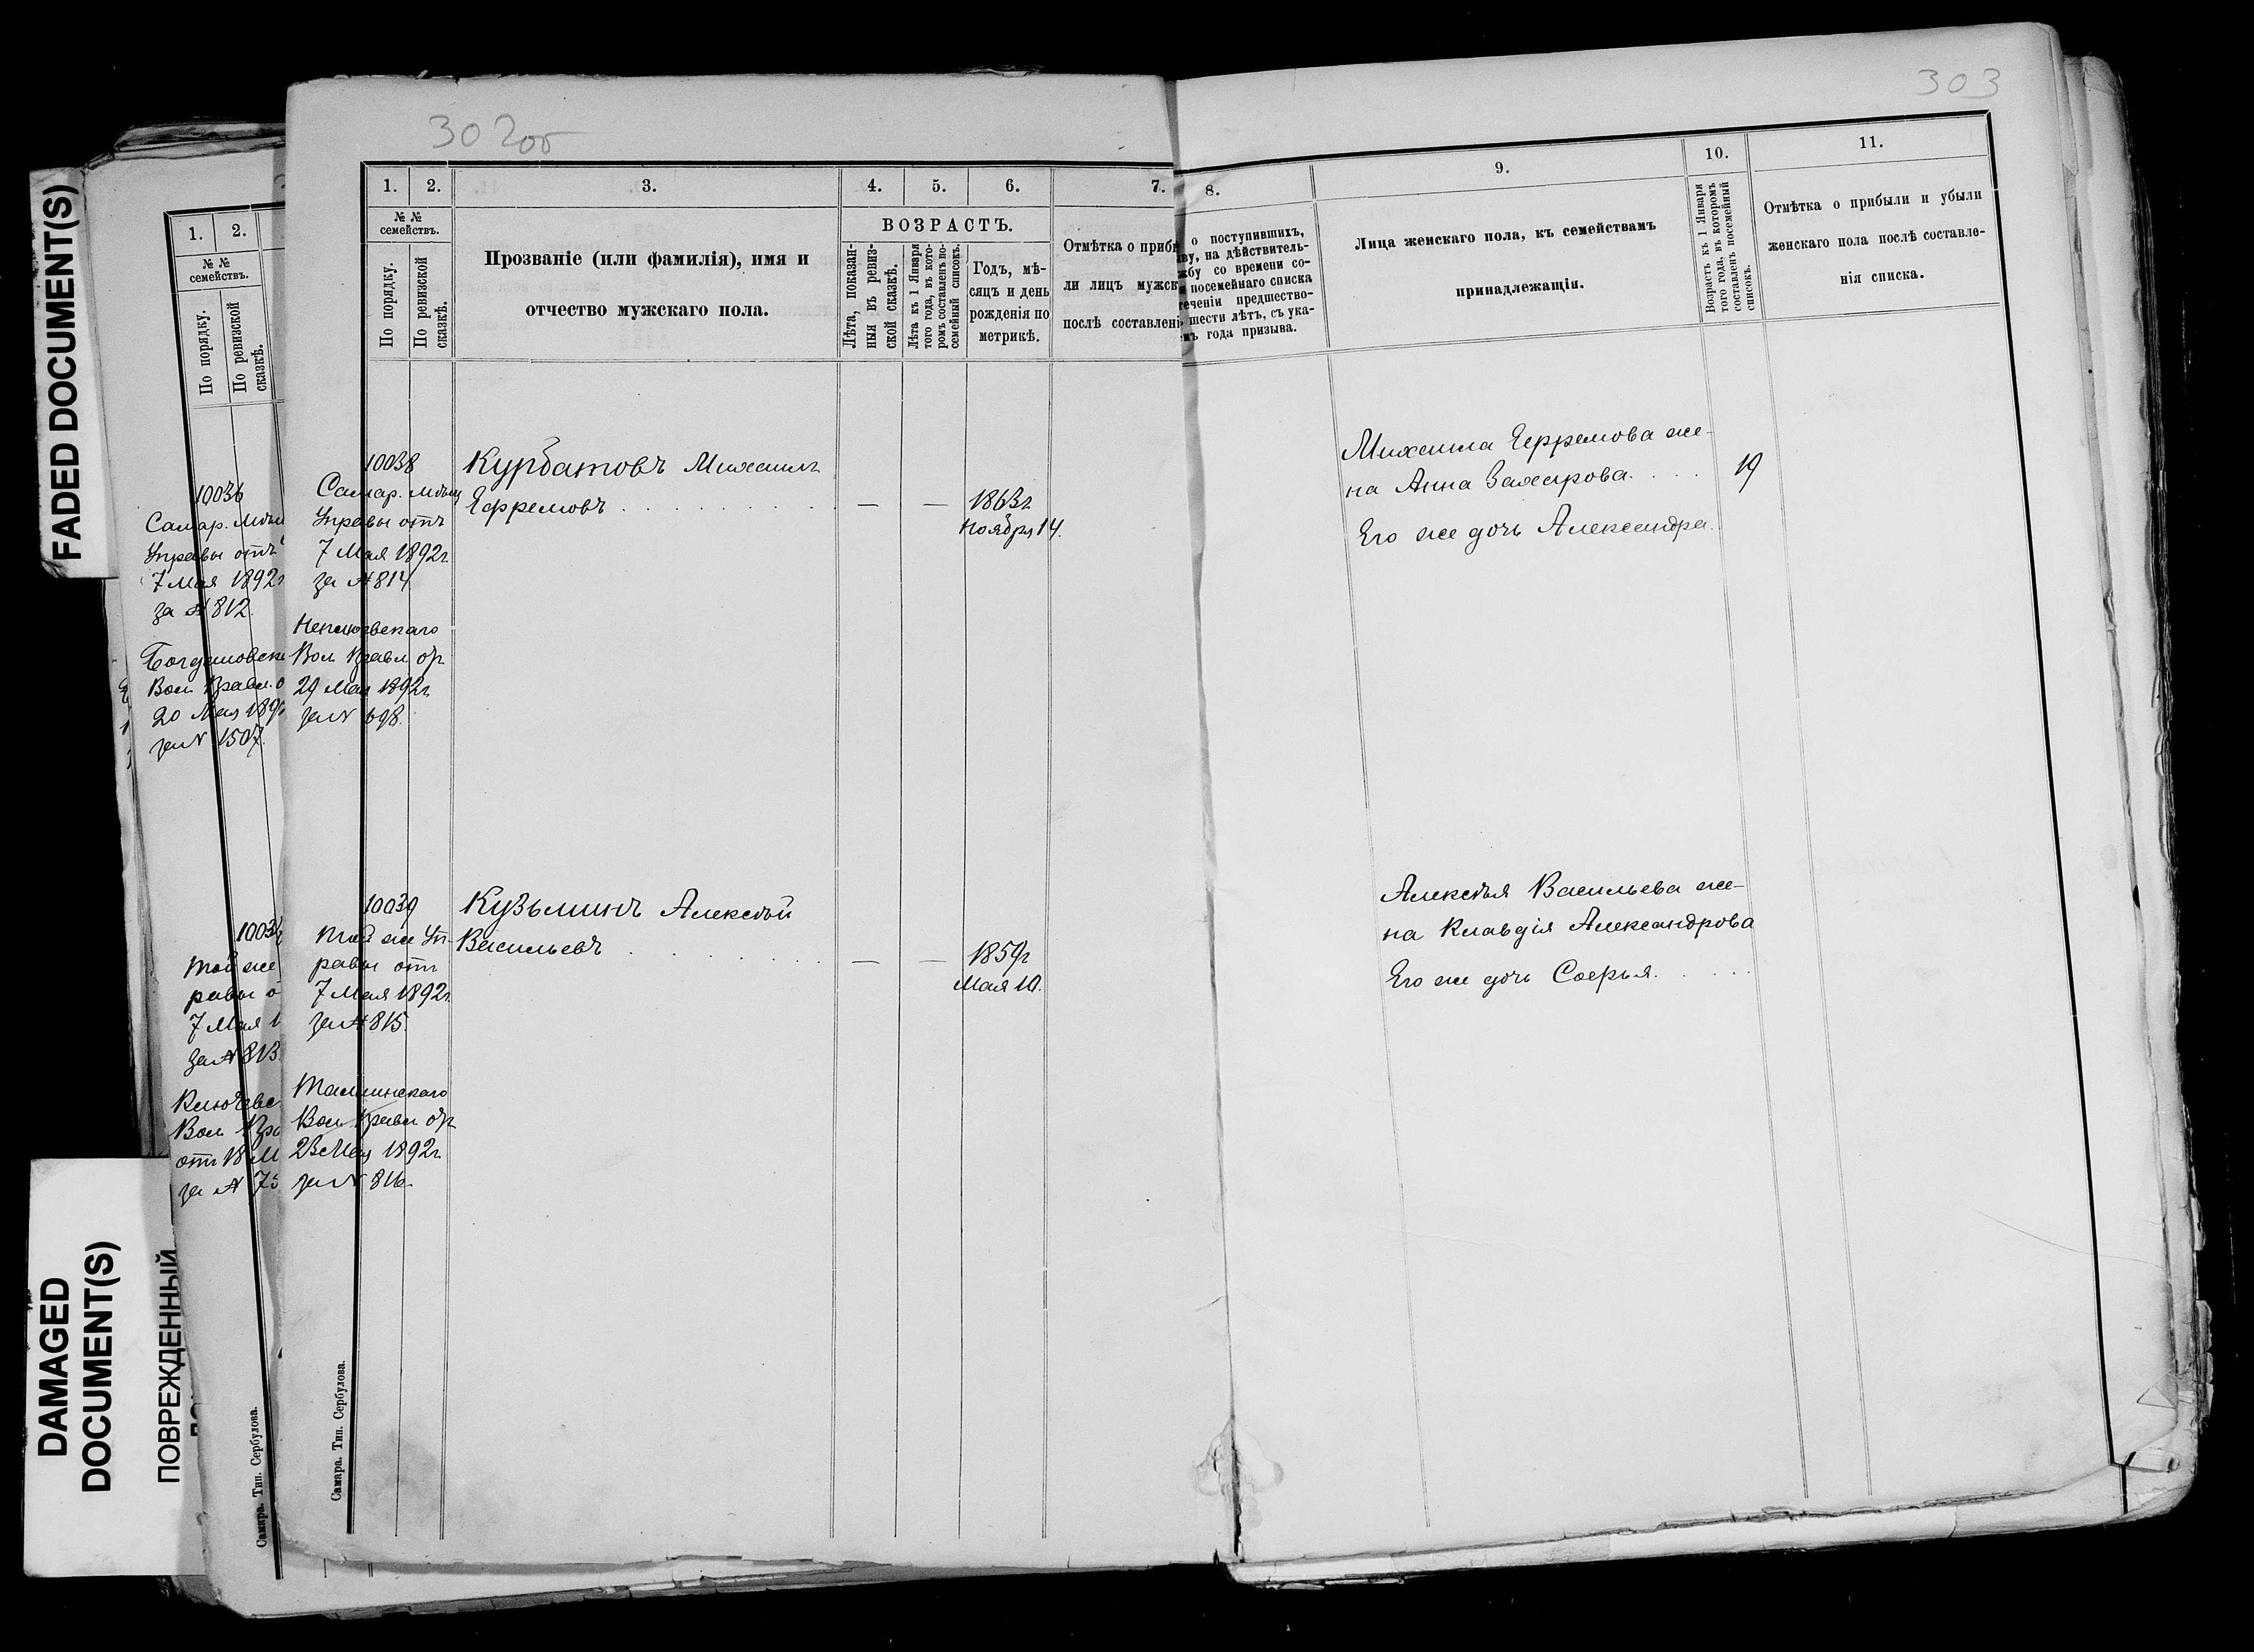 FADED DOCUMENT(S)
DAMAGED
DOCUMENT(S)
ПОВРЕЖДЕННЫЙ
1. 2.
№ №
семействъ.
По порядку.
По ревизской
сказкѣ.
10036
Самар. Мѣщ
Управы отъ
7 Мая 1892г
за № 812.
Вол. Правл. о
20 Мая 189
за № 1507.
1003
Той же
равы о
7 Мая 1
за № 813
Ключевс
Вол. Пра
отъ 18 М
за № 73
Самара. Тип. Сербулова.
302об
1. 2. 3. 4. 5. 6. 7.
№ №
семействъ.
По порядку.
По ревизской
сказкѣ.
Прозваніе (или фамилія), имя и
отчество мужскаго пола.
ВОЗРАСТЪ.
Лѣта, показан-
ныя въ ревиз-
ской сказкѣ.
Лѣта къ 1 Января
того года, въ кото-
ромъ составленъ по-
семейный списокъ.
Годъ, мѣ-
сяцъ и день
рожденія по
метрикѣ.
Отмѣтка о приб
ли лицъ мужск
послѣ составлен
10038
Самар. Мѣщ
Управы отъ
7 Мая 1892г.
за № 814
Вол. Правл. от
29 Мая 1892г.
за № 698.
Курбатовъ Михаилъ
Ефремовъ . . . . . . . . . . — — 1863г.
Ноября 14.
10039
Той же Уп-
равы отъ
7 Мая 1892г.
за № 815.
Вол. Правл. от
23 Мая 1892г.
за № 816.
Кузьминъ Алексѣй
Васильевъ . . . . . . . . . — — 1859г
Мая 10.
Самара. Тип. Сербулова.
303
8. 9. 10. 11.
о поступившихъ,
ву, на дѣйствитель-
жбу со времени со-
посемейнаго списка
теченіи предшество-
шести лѣтъ, съ ука-
емъ года призыва.
Лица женскаго пола, къ семействамъ
принадлежащія.
Возрастъ къ 1 Января
того года, въ которомъ
составленъ посемейный
списокъ.
Отмѣтка о прибыли и убыли
женскаго пола послѣ составле-
нія списка.
Михаила Ефремова же-
на Анна Захарова. . . . 19
Его же дочь Александра.
Алексѣя Васильева же-
на Клавдія Александрова
Его же дочь Софья. . . . .